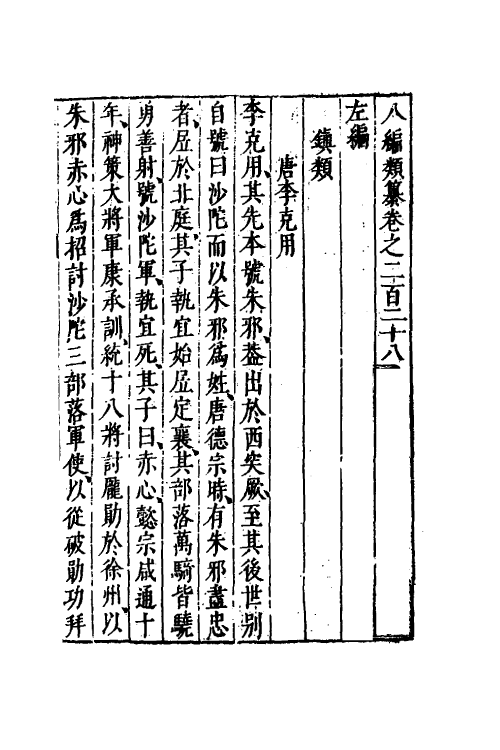 八編類纂卷之二百二十八
左編
鎮類
唐李克用
李克用、其先本號朱邪、葢出於西突厥、至其後世別
自號曰沙陀而以朱邪爲姓、唐德宗時、有朱邪盡忠
者、居於北庭、其子執宜始居定襄、其部落萬騎皆驍
勇善射、號沙陀軍、執宜死、其子曰、赤心、懿宗咸通十
年、神策大將軍康承訓、統十八將討龐勛於徐州、以
朱邪赤心爲招討沙陀三部落軍使、以從破勛功拜